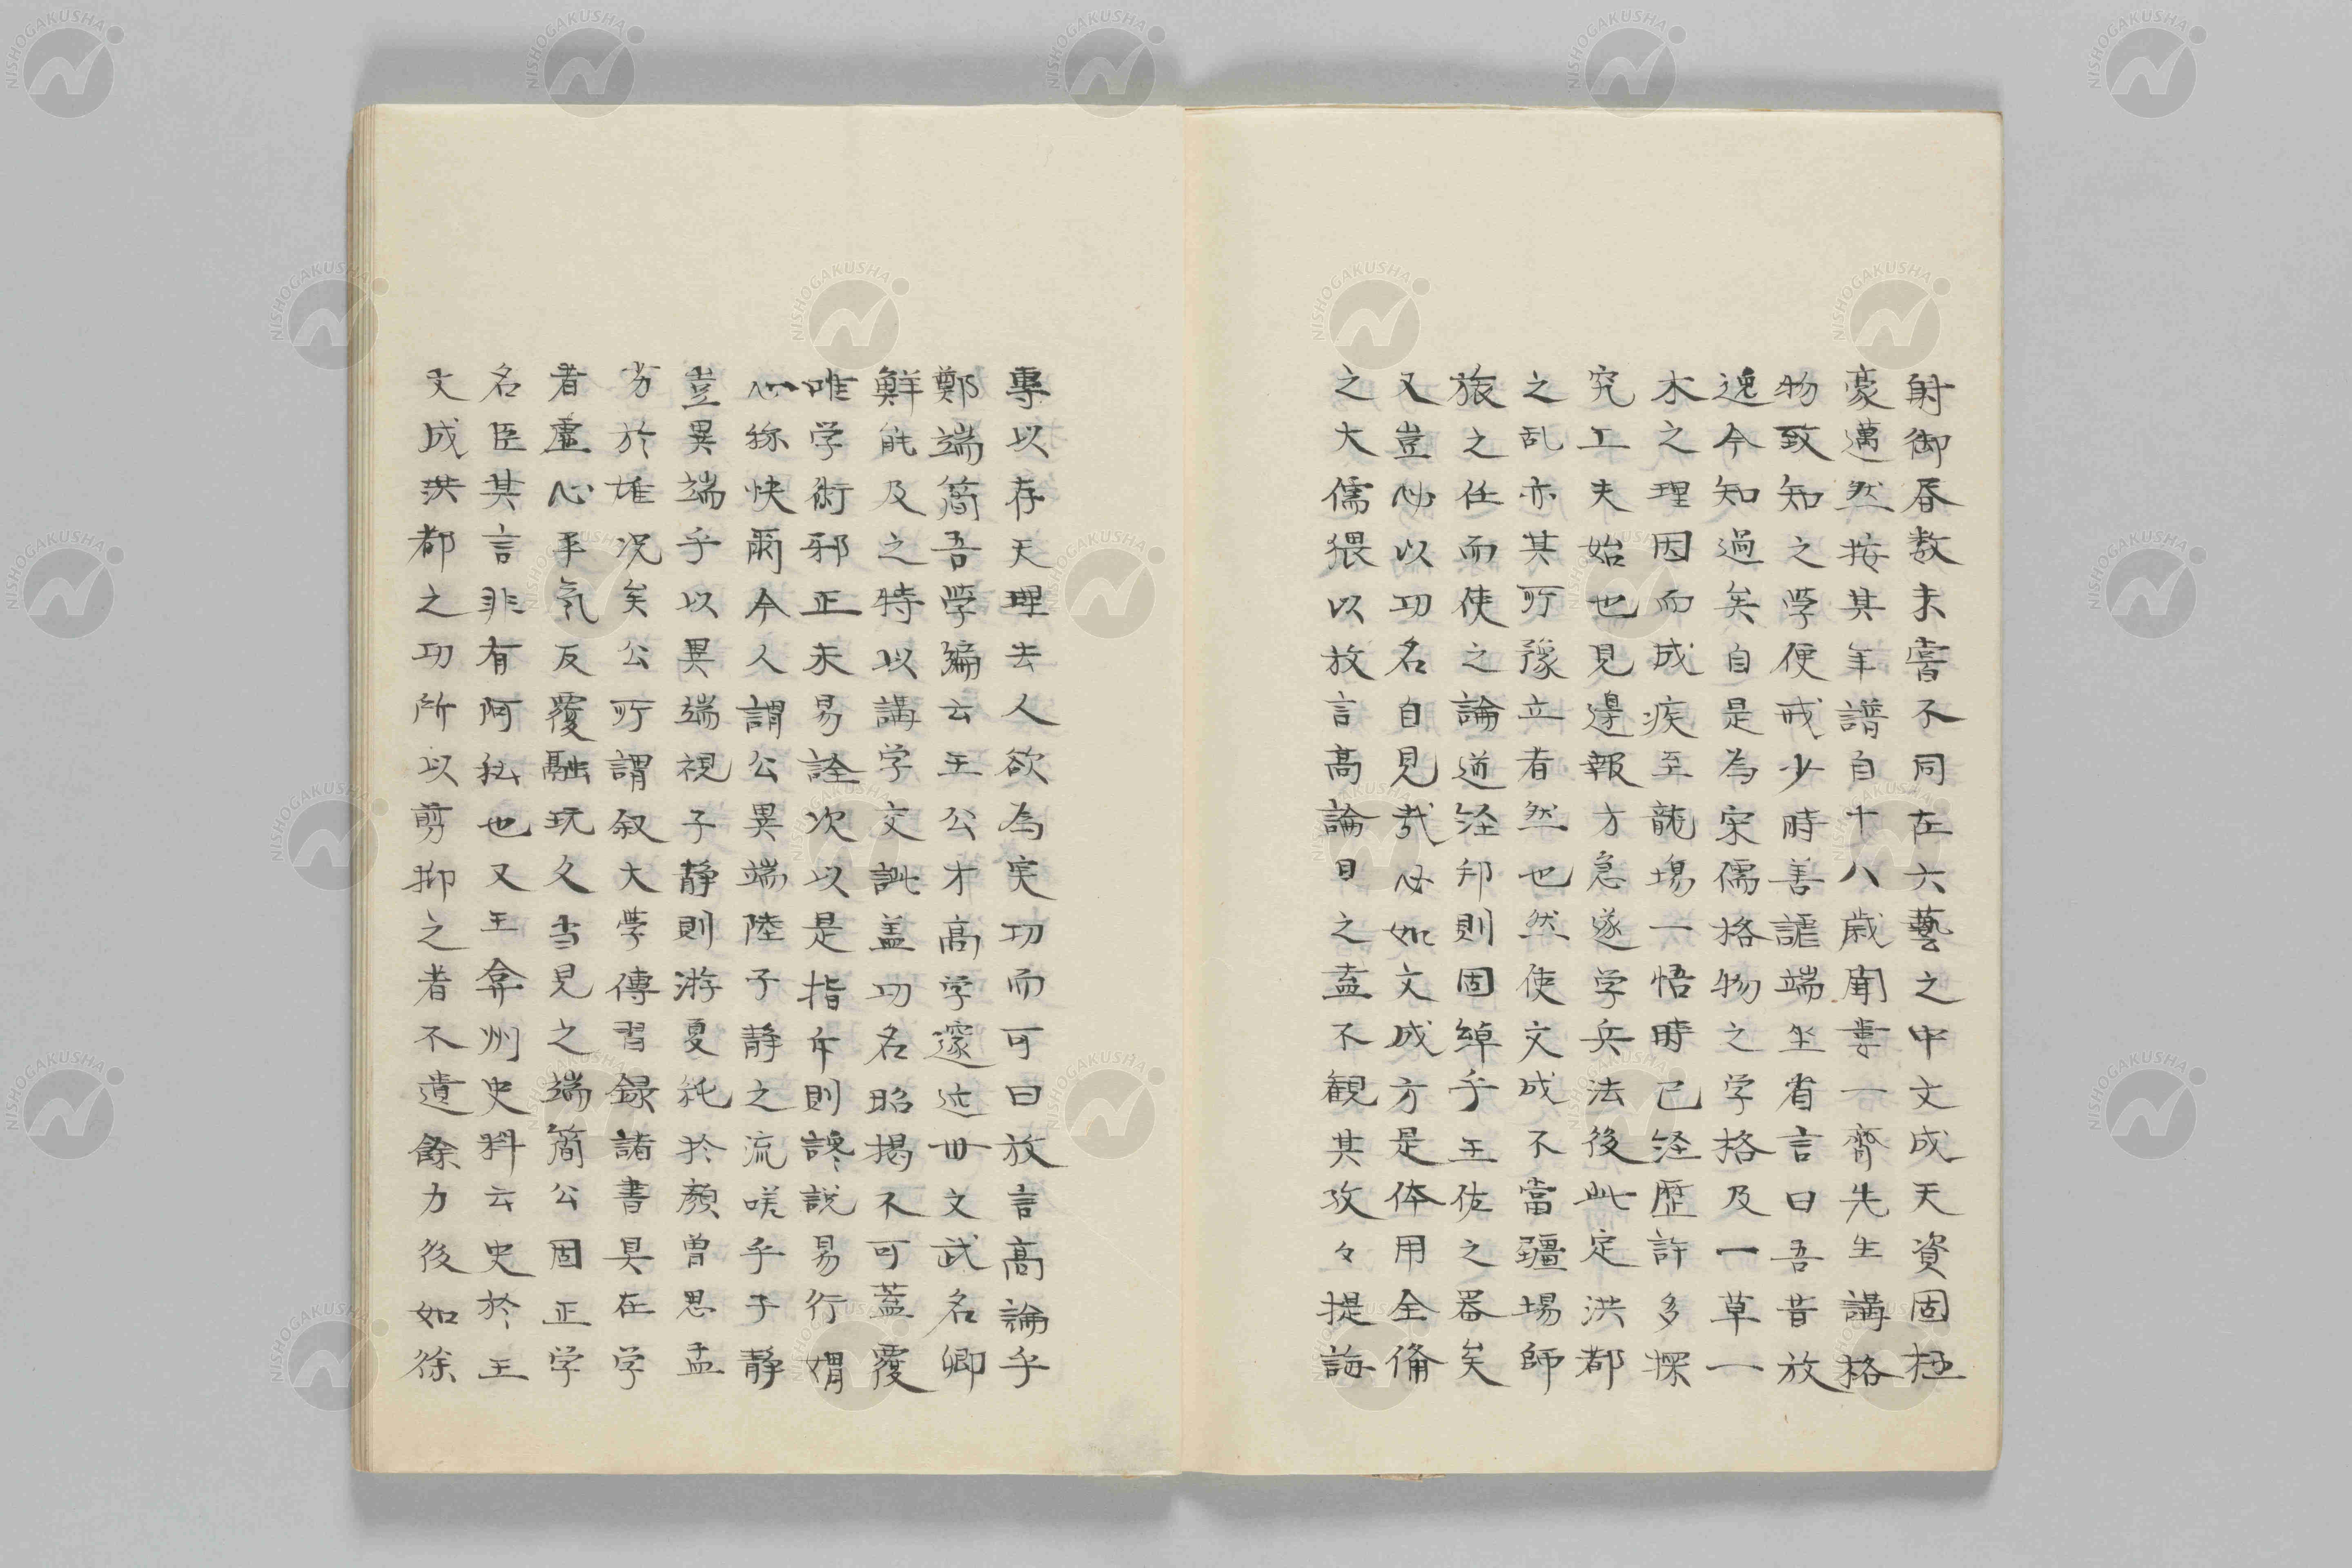 射御昏数未嘗不同在六藝之中文成天資固極
豪邁然按其年譜自十八歳聞婁一齋先生講格
物致知之學便戒少時善謔端坐省言曰吾昔放
逸今知過矣自是為宋儒格物之学格及一草一
木之理因而成疾至龍場一悟時已経歴許多探
究工夫始也見邊報方急遂学兵法後此定洪都
之乱亦其所豫立者然也然使文成不當疆場師
旅之任而使之論道経邦則固綽乎王佐之器矣
又豈必以功名自見哉必如文成方是体用全備
之大儒猥以放言高論目之盍不観其孜々提誨
專以存天理去人欲為実功而可曰放言高論乎
鄭端簡吾學編云王公才高学邃近世文武名卿
鮮能及之特以講学交訿盖功名昭掲不可蓋覆
唯学術邪正未易詮次以是指斥則讒説易行媢
心称快爾今人謂公異端陸子静之流嗟乎子静
豈異端乎以異端視子静則游夏純於顔曽思孟
劣於雄况矣公所謂叙大學傳習録諸書具在学
者虚心平氣反覆融玩久当見之端簡公固正学
名臣其言非有阿私也又王弇州史料云史於王
文成洪都之功所以剪抑之者不遺餘力後如徐